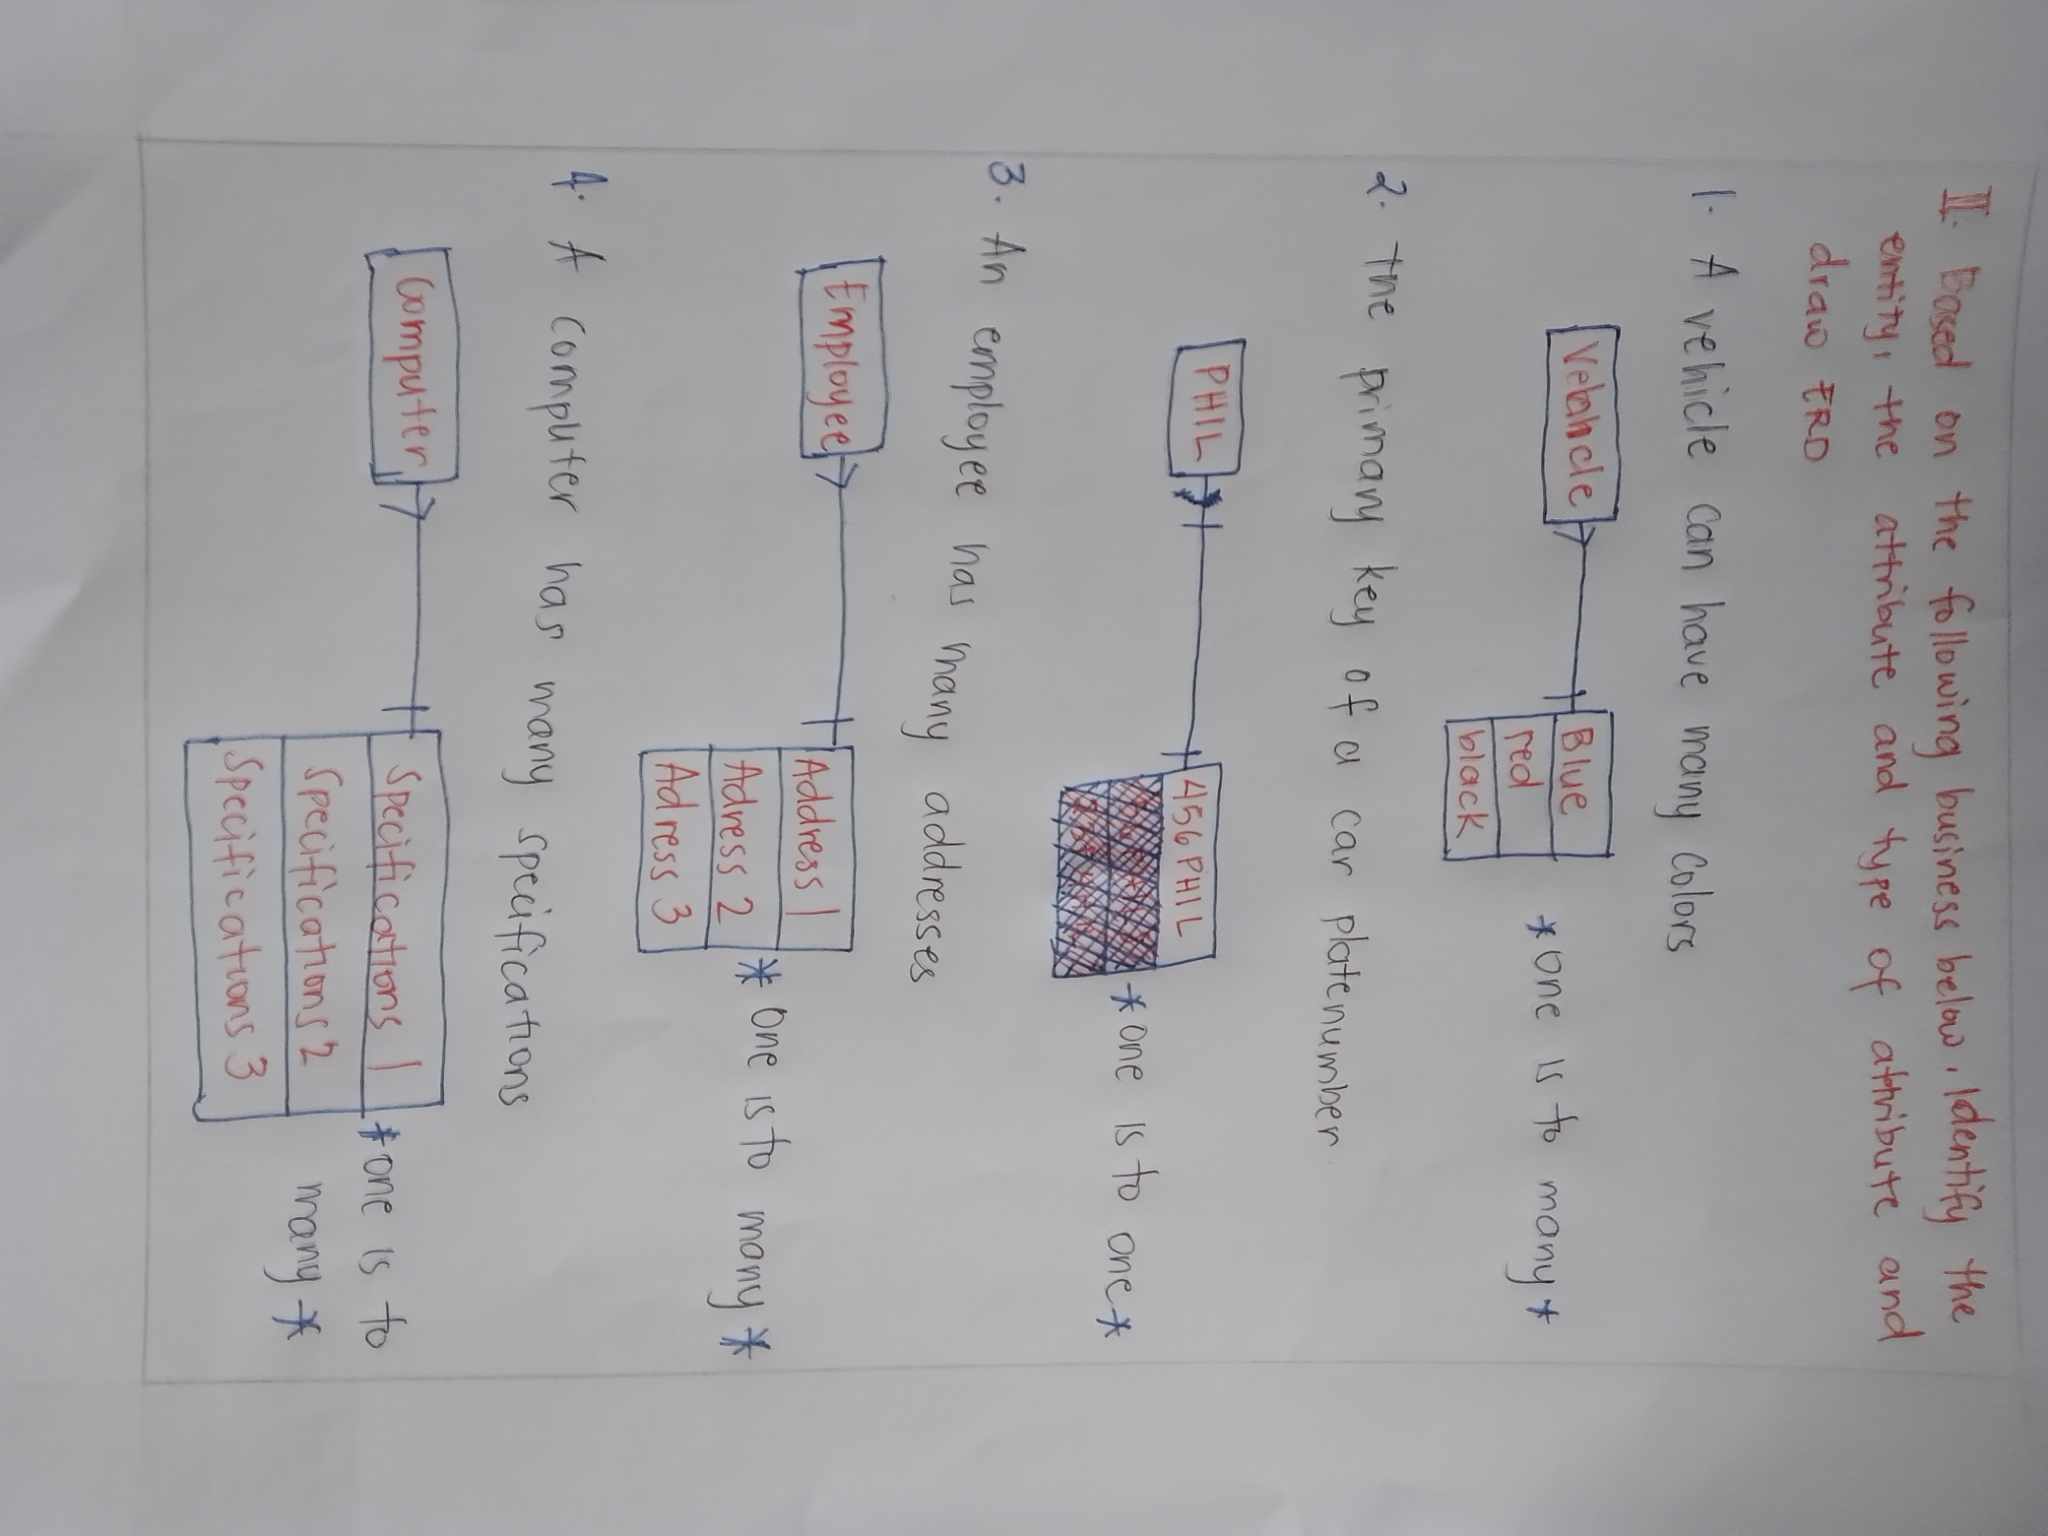 II. Based on the following business below, Identify the
entity, the attribute and type of attribute and
draw ERD
1. A vehicle can have many colors
Vehhcle
Blue
red
black
*one is to many*
2. the primary key of a car platenumber
PHIL
456PHIL
*one is to one*
3. An employee has many addresses
Employee
Address 1
Adress 2
Adress 3
* one is to many *
4. A computer has many specifications
Computer
Specifications 1
Specifications 2
Specifications 3
*one is to
many *